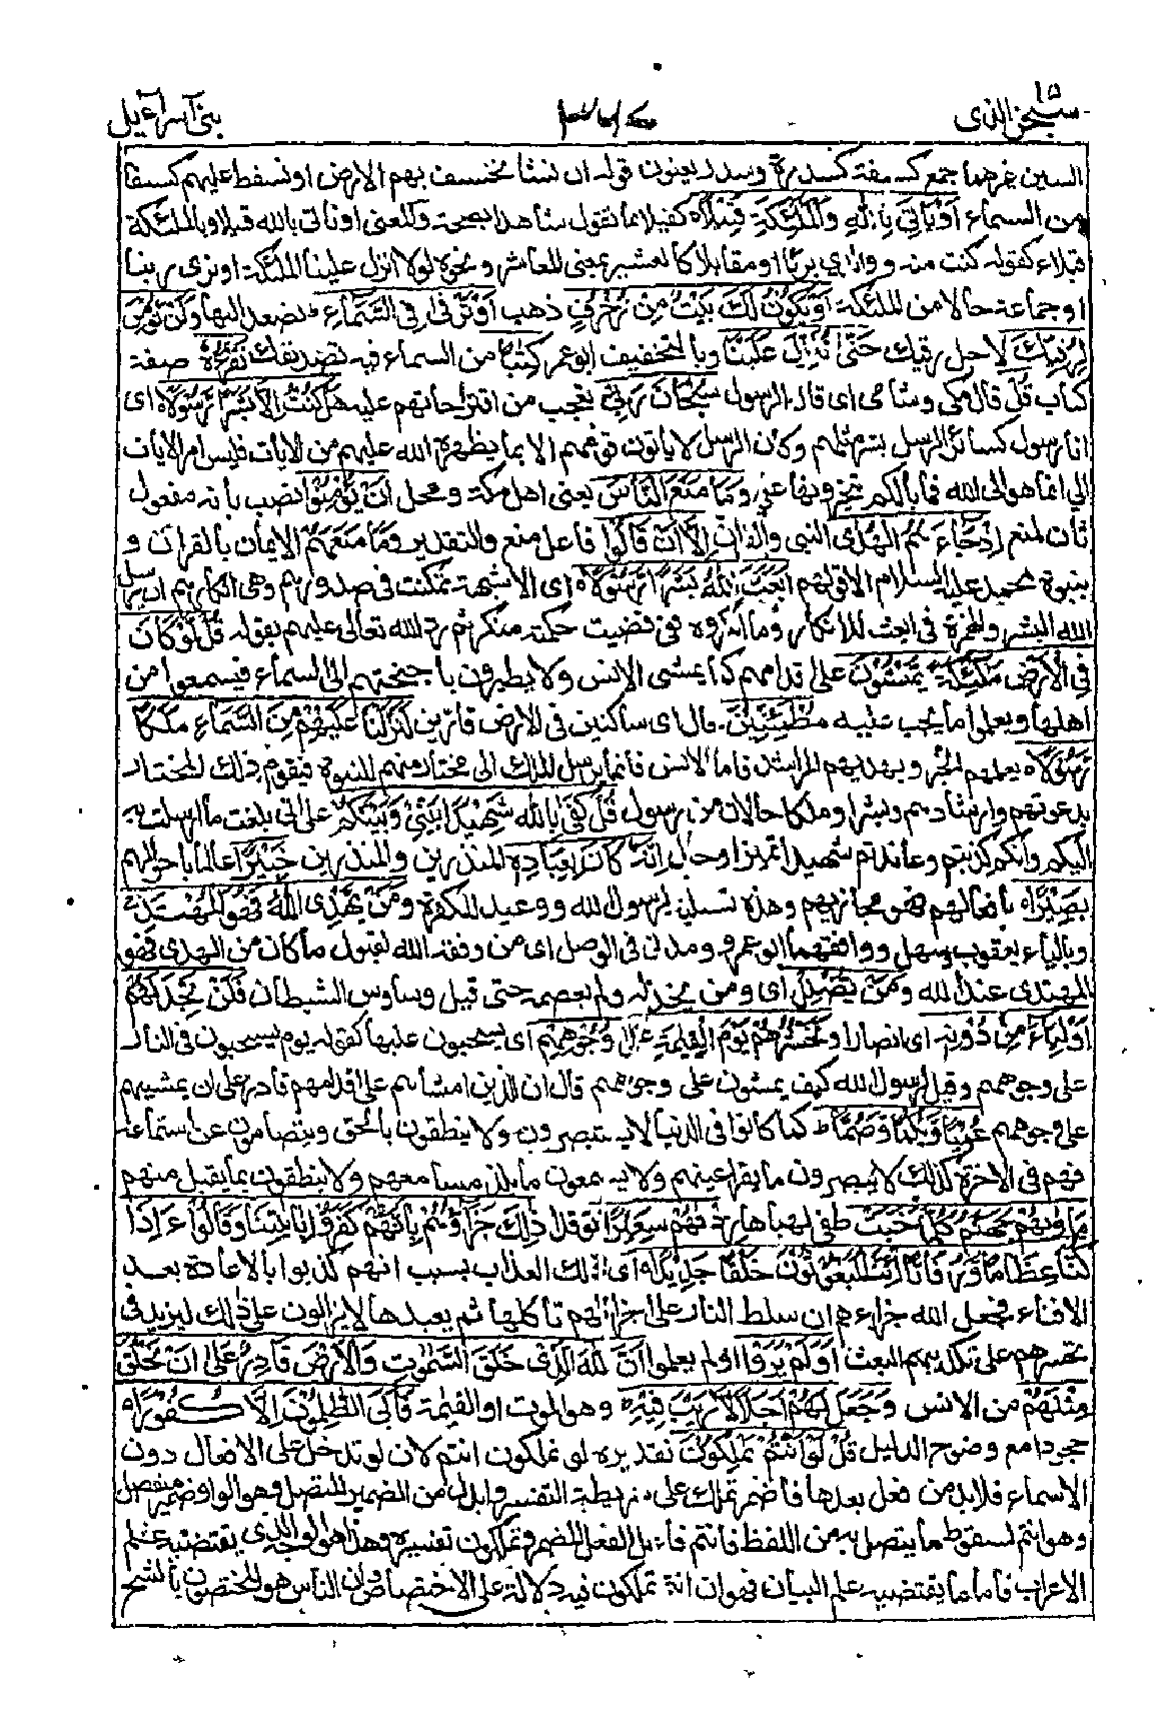 سبحن الذی ١٥
بنی اسرآءیل
السین غیرهما جمع کسفة کسدرة وسدر یعنون قوله ان نشأ نخسف بهم الارض او نسقط علیهم کسفا
من السماء اَوْ تَاْتِیَ بِاللّٰهِ وَالْمَلٰٓئِکَةِ قَبِیْلًا کفیلا بما تقول شاهدا بصحته والمعنی او تاتی بالله قبیلا وبالملئکة
قبلاء کقوله کنت منه ووالدی بریّا او مقابلا کالعشیر بمعنی المعاشر ونحوه لولا انزل علینا الملئکة او نری ربنا
او جماعة حالا من الملئکة اَوْ یَکُوْنَ لَکَ بَیْتٌ مِّنْ زُخْرُفٍ ذهب اَوْ تَرْقٰی فِی السَّمَآءِ تصعد الیها وَلَنْ نُّؤْمِنَ
لِرُقِیِّکَ لاجل رقیک حَتّٰی تُنَزِّلَ عَلَیْنَا وبالتخفیف ابو عمر کِتٰبًا من السماء فیه تصدیقک نَّقْرَؤُهٗ صفة
کتاب قُلْ قال مکی وشامی ای قال الرسول سُبْحَانَ رَبِّیْ تعجب من اقتراحاتهم علیه هَلْ کُنْتُ اِلَّا بَشَرًا رَّسُوْلًا ای
انا رسول کسائر الرسل بشر مثلهم وکان الرسل لا یاتون قومهم الا بما یظهره الله علیهم من الایات فلیس امر الایات
الی انما هو الی الله فما بالکم تتخیرونها علی وَمَا مَنَعَ النَّاسَ یعنی اهل مکة ومحل اَنْ یُّؤْمِنُوْا نصب بانه مفعول
ثان لمنع اِذْ جَآءَهُمُ الْهُدٰی النبی والقران اِلَّا اَنْ قَالُوْا فاعل منع والتقدیر وما منعهم الایمان بالقران و
بنبوة محمد علیه السلام الا قولهم اَبَعَثَ اللّٰهُ بَشَرًا رَّسُوْلًا ای الا شبهة تمکنت فی صدورهم وهی انکارهم ان یرسل
الله البشر والهمزة فی ابعث للانکار وما انکروه ففی قضیت حکمته منکر ثم رد الله تعالی علیهم بقوله قُلْ لَّوْ کَانَ
فِی الْاَرْضِ مَلٰٓئِکَةٌ یَّمْشُوْنَ علی اقدامهم کما یمشی الانس ولا یطیرون باجنحتهم الی السماء فیسمعوا من
اهلها ویعلموا ما یجب علیه مُطْمَئِنِّیْنَ حال ای ساکنین فی الارض قارین لَنَزَّلْنَا عَلَیْهِمْ مِّنَ السَّمَآءِ مَلَکًا
رَّسُوْلًا یعلمهم الخیر ویهدیهم المراشد فاما الانس فانما یرسل الملک الی مختار منهم للنبوة فیقوم ذلک المختار
بدعوتهم وارشادهم وبشرا وملکا حالان من رسول قُلْ کَفٰی بِاللّٰهِ شَهِیْدًۢا بَیْنِیْ وَبَیْنَکُمْ علی انی بلغت ما ارسلت به
الیکم وانکم کذبتم وعاندتم شهیدا تمییز او حال اِنَّهٗ کَانَ بِعِبَادِهٖ المنذرین والمنذرین خَبِیْرًا عالما باحوالهم
بَصِیْرًا بافعالهم فهو مجازیهم وهذه تسلیة لرسول الله ووعید للکفرة وَمَنْ یَّهْدِی اللّٰهُ فَهُوَ الْمُهْتَدِ
وبالیاء یعقوب وسهل ووافقهما ابو عمرو ومدنی فی الوصل ای من وفقه الله لقبول ما کان من الهدی فهو
المهتدی عند الله وَمَنْ یُّضْلِلْ ای ومن یخذله ولم یعصمه حتی قبل وساوس الشیطان فَلَنْ تَجِدَ لَهُمْ
اَوْلِیَآءَ مِنْ دُوْنِهٖ ای انصارا وَنَحْشُرُهُمْ یَوْمَ الْقِیٰمَةِ عَلٰی وُجُوْهِهِمْ ای یسحبون علیها کقوله یوم یسحبون فی النار
علی وجوههم وقیل لرسول الله کیف یمشون علی وجوههم قال ان الذین امشاهم علی اقدامهم قادر علی ان یمشیهم
علی وجوههم عُمْیًا وَّبُکْمًا وَّصُمًّا کما کانوا فی الدنیا لا یستبصرون ولا ینطقون بالحق ویتصامون عن استماعه
فهم فی الاخرة کذلک لا یبصرون ما یقر اعینهم ولا یسمعون ما یلذ مسامعهم ولا ینطقون بما یقبل منهم
مَاْوٰىهُمْ جَهَنَّمُ کُلَّمَا خَبَتْ طفی لهبها زِدْنٰهُمْ سَعِیْرًا توقدا ذٰلِکَ جَزَآؤُهُمْ بِاَنَّهُمْ کَفَرُوْا بِاٰیٰتِنَا وَقَالُوْٓا ءَاِذَا
کُنَّا عِظَامًا وَّرُفَاتًا ءَاِنَّا لَمَبْعُوْثُوْنَ خَلْقًا جَدِیْدًا ای ذلک العذاب بسبب انهم کذبوا بالاعادة بعد
الافناء فجعل الله جزاءهم ان سلط النار علی اجزائهم تاکلها ثم یعیدها لا یزالون علی ذلک لیزید فی
تحسرهم علی تکذیبهم البعث اَوَلَمْ یَرَوْا اولم یعلموا اَنَّ اللّٰهَ الَّذِیْ خَلَقَ السَّمٰوٰتِ وَالْاَرْضَ قَادِرٌ عَلٰٓی اَنْ یَّخْلُقَ
مِثْلَهُمْ من الانس وَجَعَلَ لَهُمْ اَجَلًا لَّا رَیْبَ فِیْهِ وهو الموت او القیٰمة فَاَبَی الظّٰلِمُوْنَ اِلَّا کُفُوْرًا
جحودا مع وضوح الدلیل قُلْ لَّوْ اَنْتُمْ تَمْلِکُوْنَ تقدیره لو تملکون انتم لان لو تدخل علی الافعال دون
الاسماء فلا بد من فعل بعدها فاضمر تملک علی شریطة التفسیر وابدل من الضمیر المتصل وهو الواو ضمیر منفصل
وهو انتم لسقوط ما یتصل به من اللفظ فانتم فاعل الفعل المضمر وتملکون تفسیره وهذا هو الوجه الذی یقتضیه علم
الاعراب فاما ما یقتضیه علم البیان فهو ان انتم تملکون فیه دلالة علی الاختصاص وان الناس هو المختصون بالشح